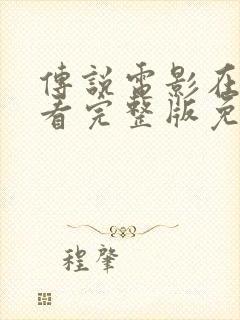 傳說電影在
看完整版免
程肇